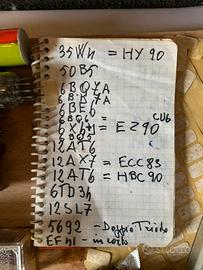 35W4 = HY90
50B5
6BQ7A
6BK7A
6BE6
6BQ6 CV6
6X4 = EZ90
6BQ5
12AT6
12AX7 = ECC83
12AT6 = HBC90
6TD34
12SL7
5692 - Doppio Triodo
EF41 - in corto